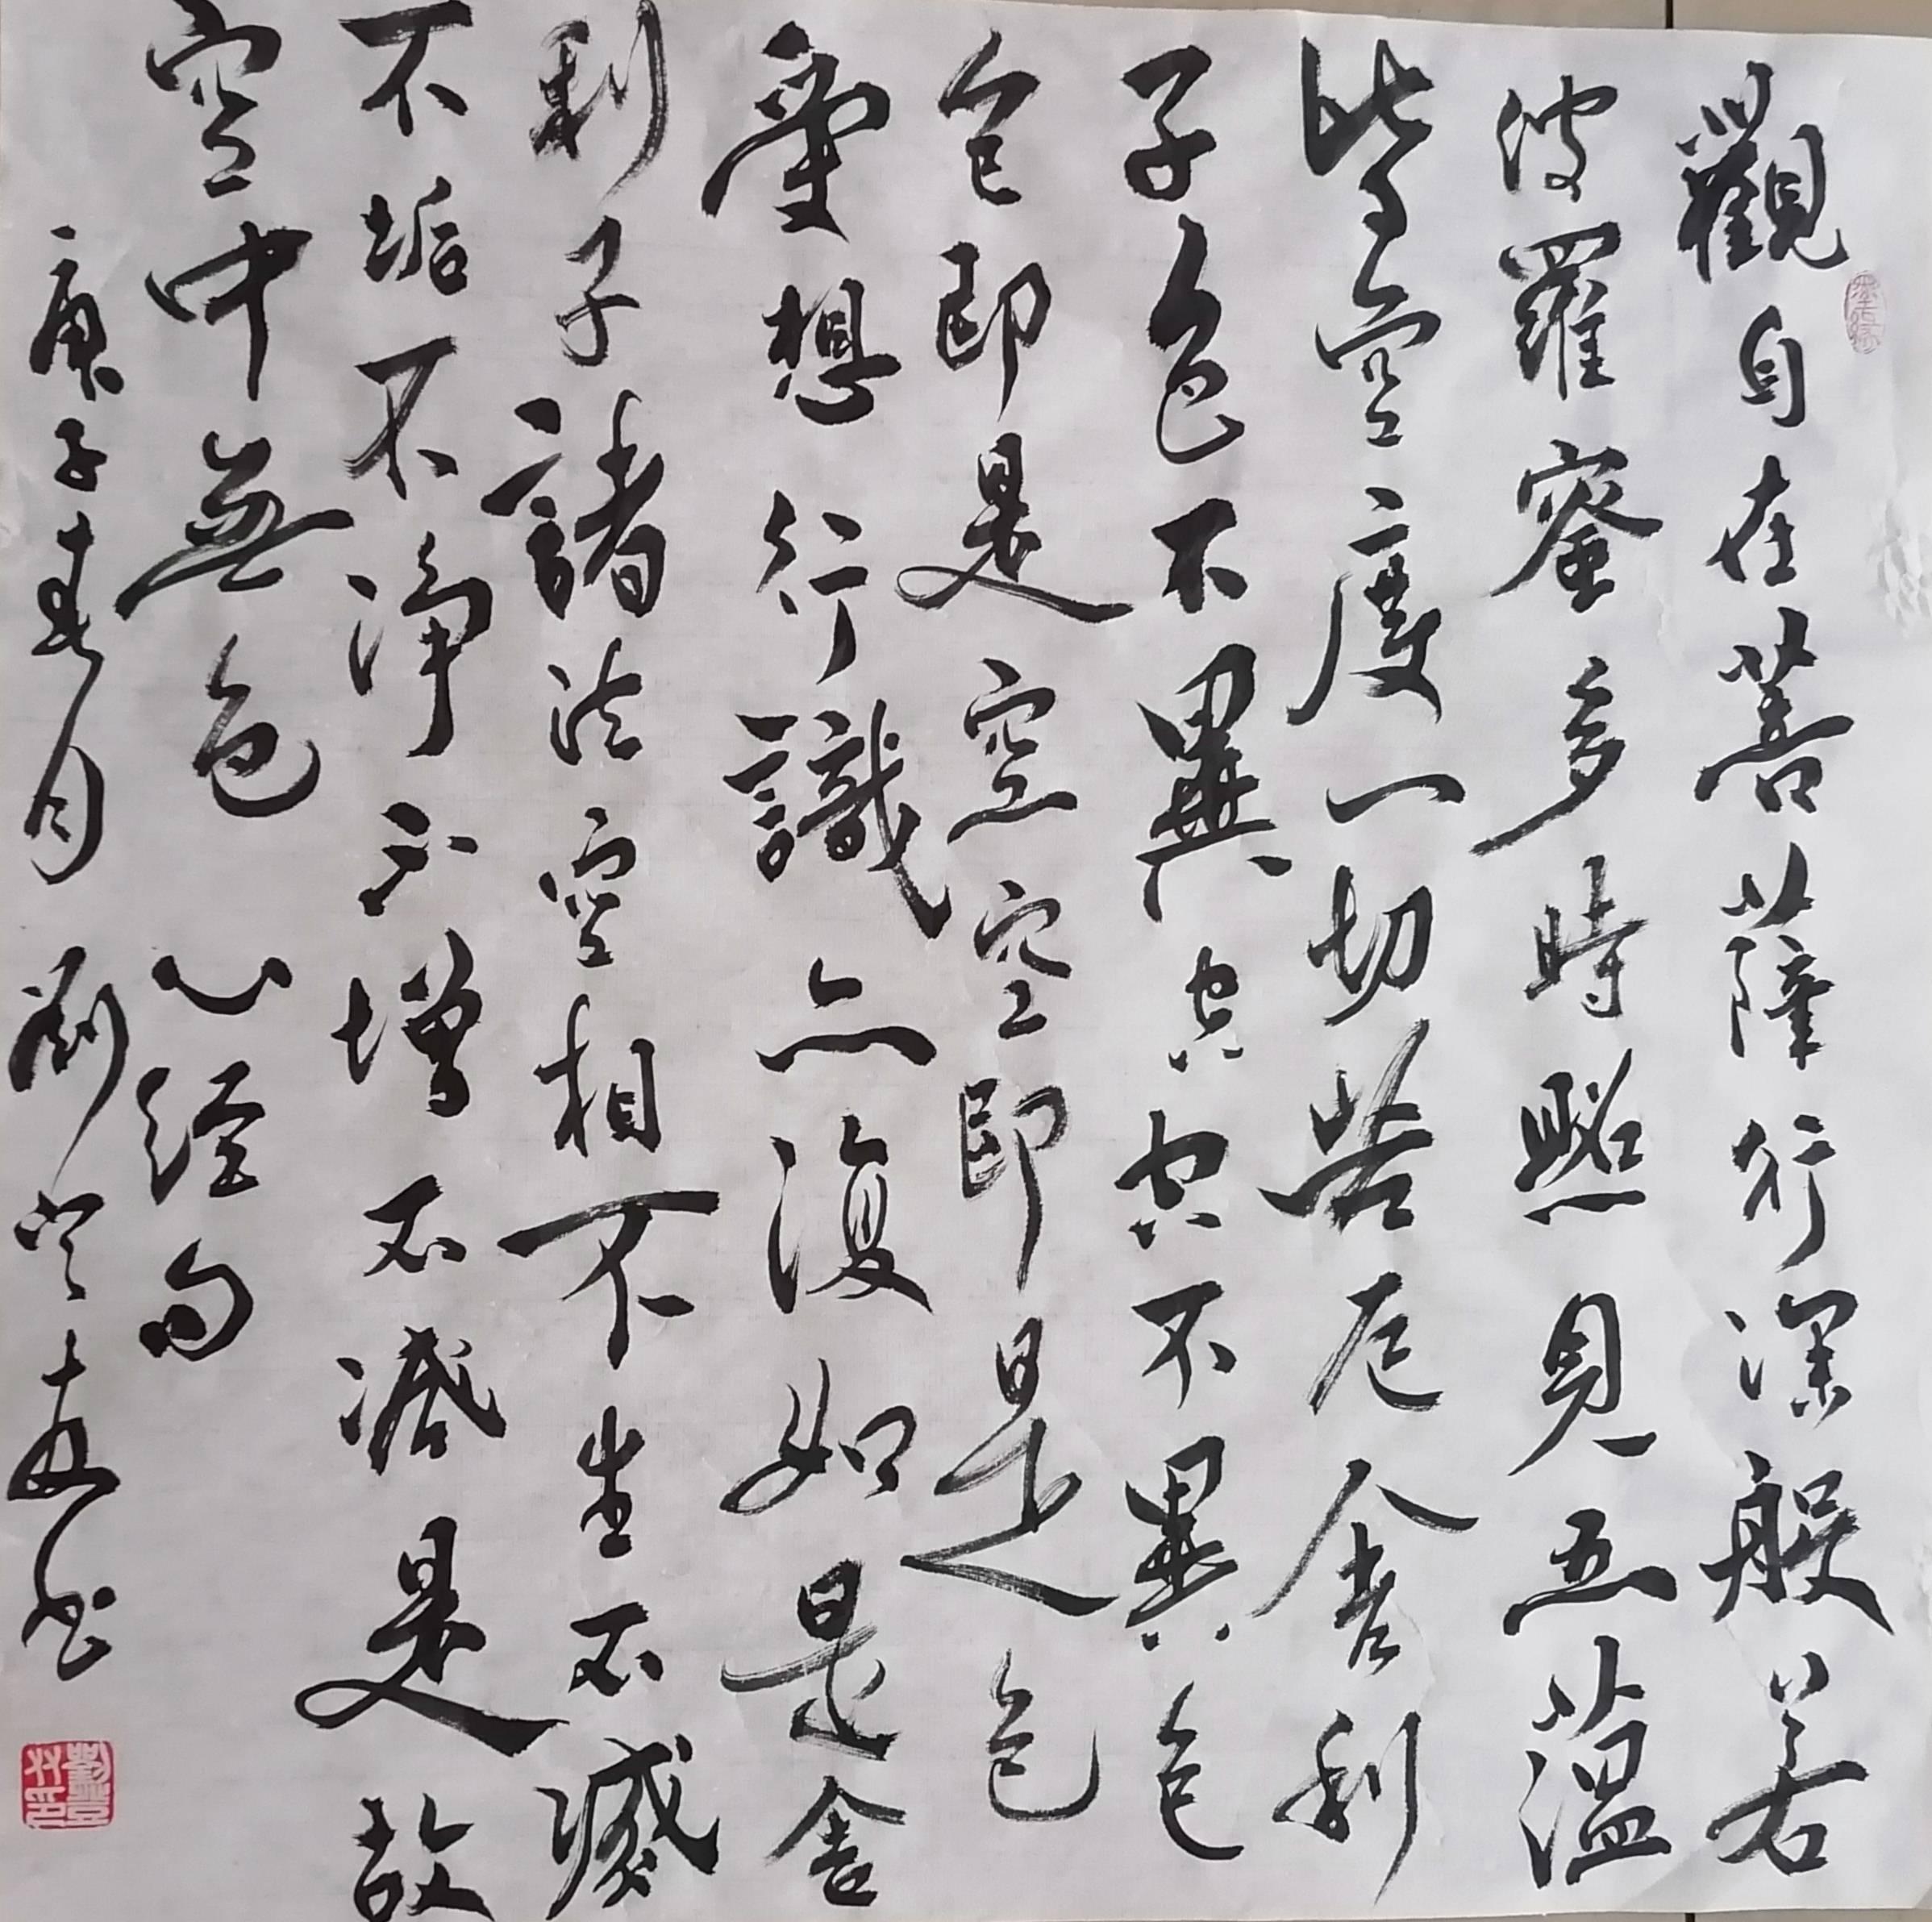 觀自在菩薩行深般若
波羅蜜多時照見五蘊
皆空度一切苦厄舍利
子色不異空空不異色
色即是空空即是色
受想行識亦復如是舍
利子諸法空相不生不滅
不垢不淨不增不減是故
空中無色 心经句
庚子春月 刘 书